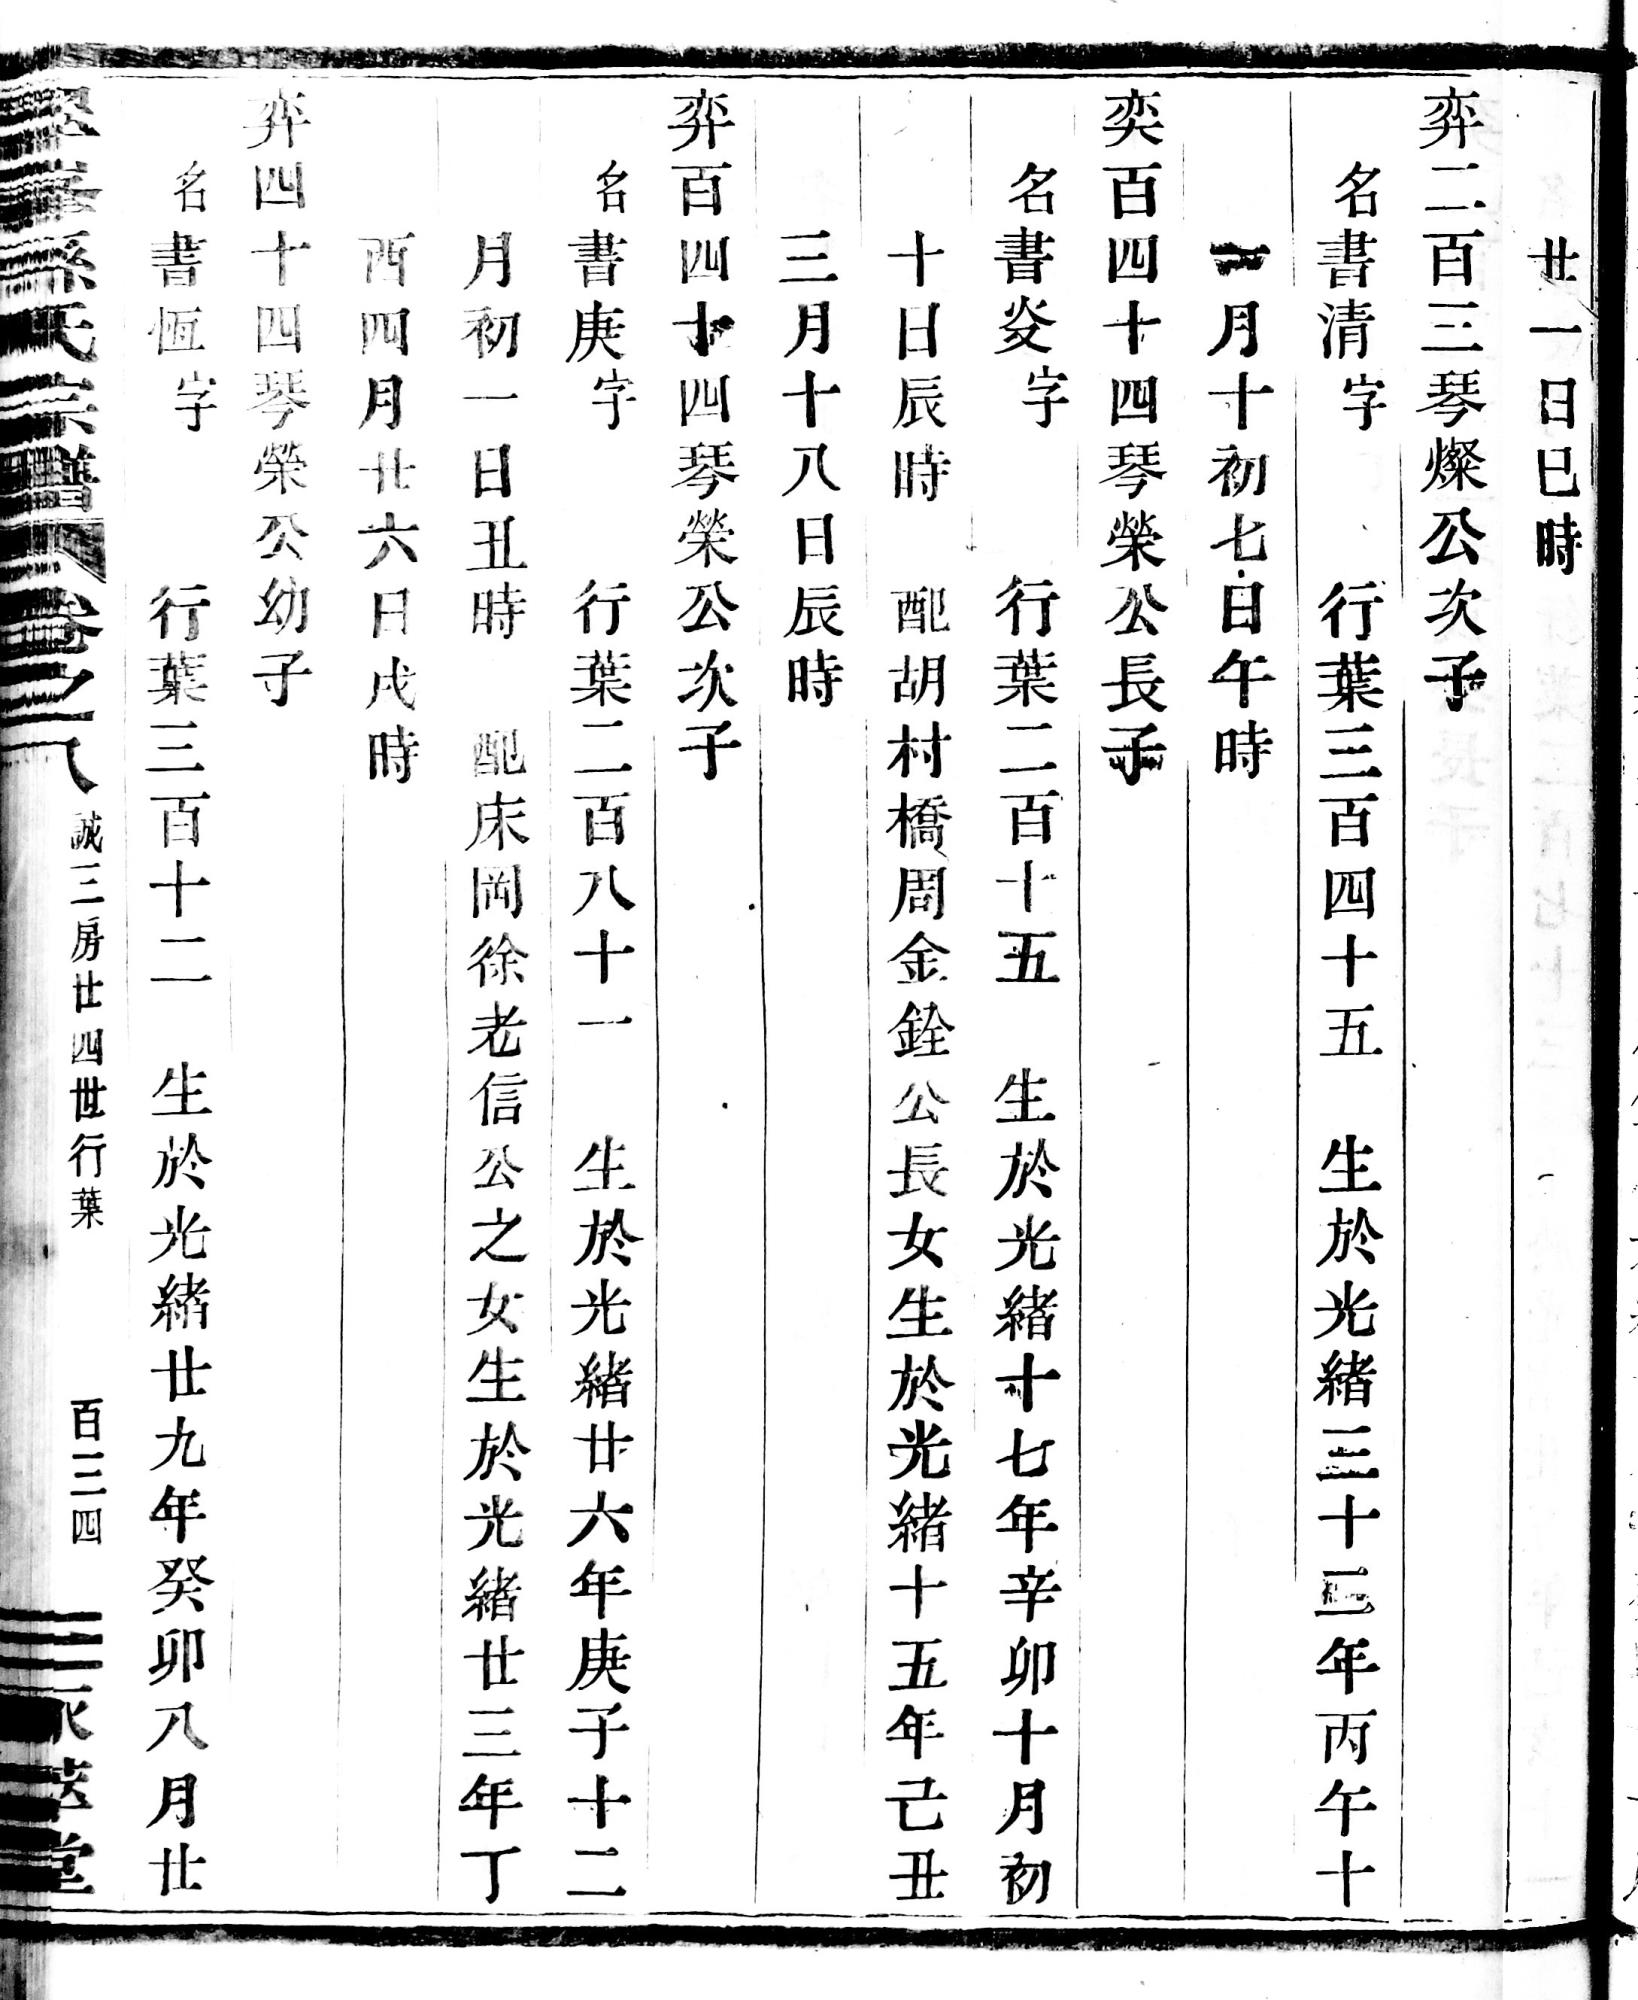 廿一日巳時
弈二百三琴燦公次子
名書清字　行葉三百四十五　生於光緒三十二年丙午十
一月十初七日午時
奕百四十四琴榮公長子
名書炎字　行葉二百十五　生於光緒十七年辛卯十月初
十日辰時　配胡村橋周金銓公長女生於光緒十五年己丑
三月十八日辰時
弈百四十四琴榮公次子
名書庚字　行葉二百八十一　生於光緒廿六年庚子十二
月初一日丑時　配床岡徐老信公之女生於光緒廿三年丁
酉四月廿六日戌時
弈四十四琴榮公幼子
名書恆字　行葉三百十二　生於光緒廿九年癸卯八月廿
孫氏宗譜　卷之八　誠三房廿四世行葉　百三四　堂